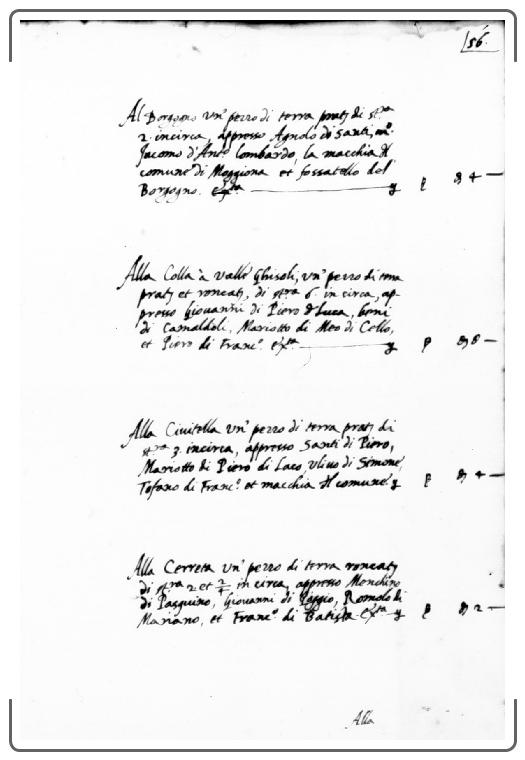 56.
Al Borgogno un' pezzo di terra prati di st.ra
2. incirca, appresso Agnolo di Santi, m.o
Jacomo d'Ant.o lombardo, la macchia d'l
comune di Moggiona et fossatello del
Borgogno. 4 —
Alla Colla à valle Ghisoli, un' pezzo di terra
prati et roncati, di st.ra 6. in circa, ap-
presso Giovanni di Piero d Luca, beni
di Camaldoli, Mariotto di Meo di Cello,
et Piero di Franc.o 8 —
Alla Civitella un' pezzo di terra prati di
st.ra 3. incirca, appresso Santi di Piero,
Mariotto di Piero di Laco, ulivo di Simone,
Tofano di Franc.o et macchia d'l comune 4 —
Alla Cerreta un' pezzo di terra roncati
di st.ra 2 et 2/4 in circa, appresso Menchino
di Pasquino, Giovanni di Poggio, Romolo di
Mariano, et Franc.o di Batista 2 —
Alla